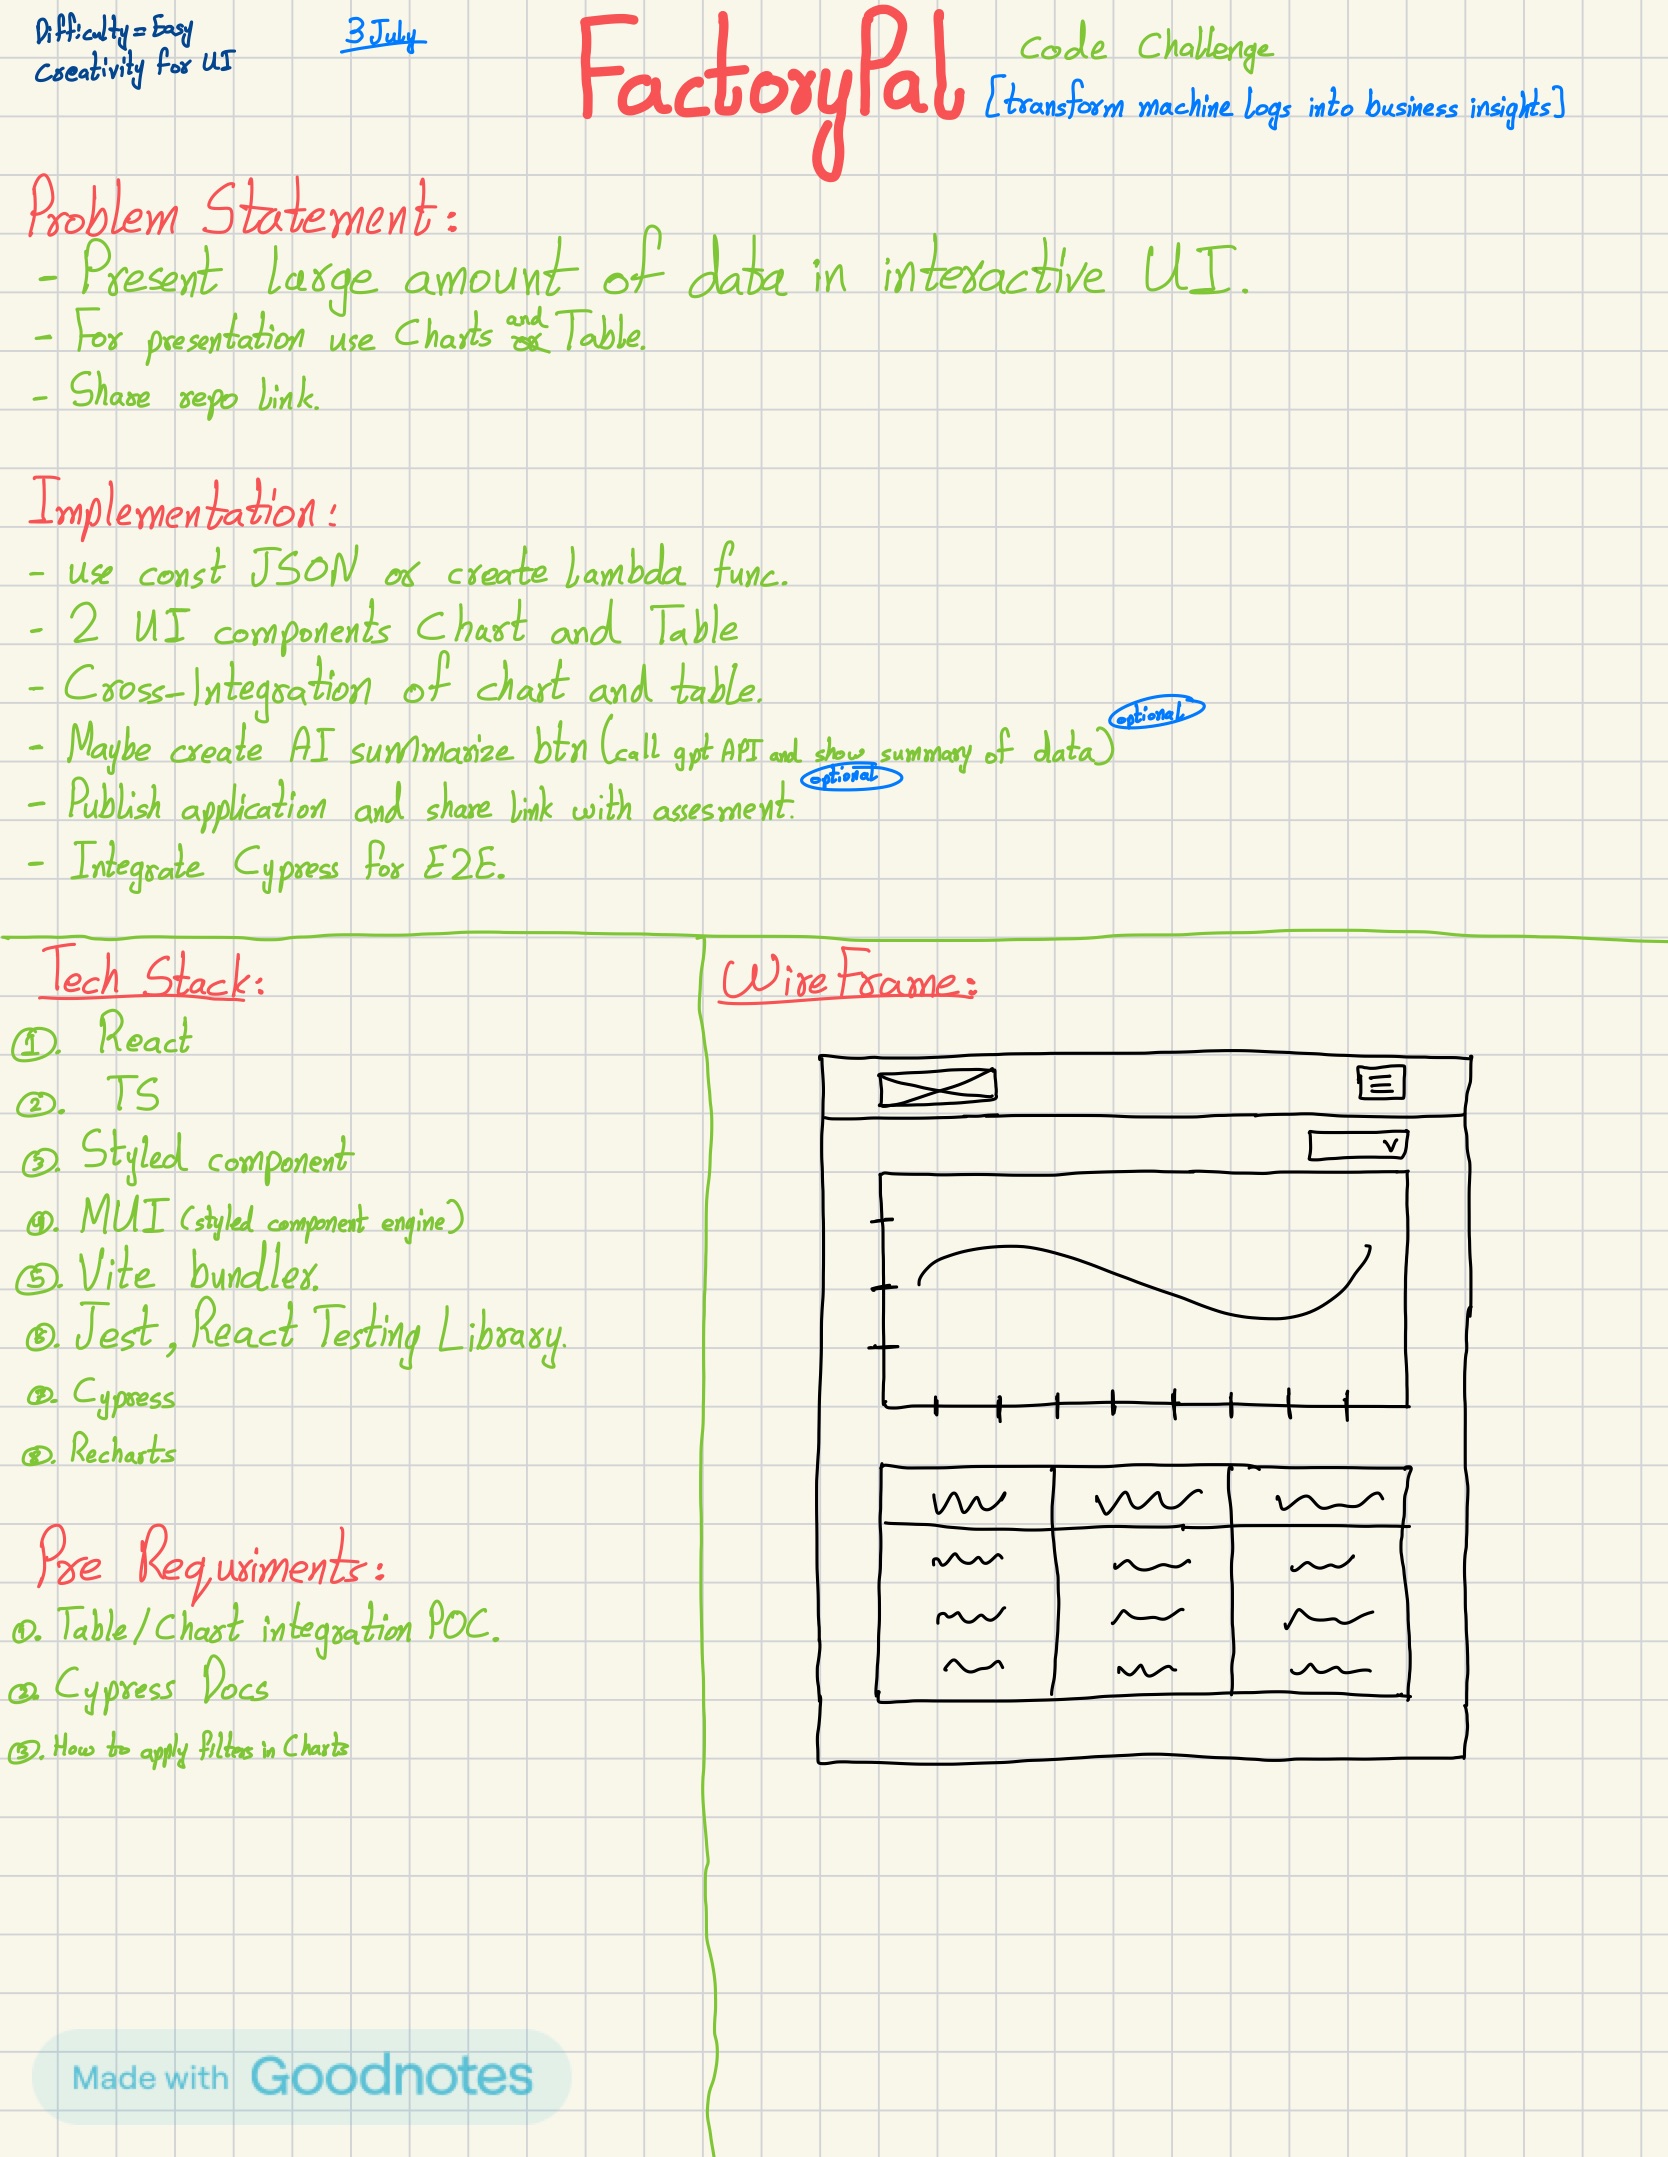 Difficulty = Easy
Creativity for UI
3 July
FactoryPal
Code Challenge
[transform machine logs into business insights]
Problem Statement:
- Present large amount of data in interactive UI.
- For presentation use Charts and or Table.
- Share repo link.
Implementation:
- use const JSON or create lambda func.
- 2 UI components Chart and Table
- Cross-Integration of chart and table.
- Maybe create AI summarize btn (call gpt API and show summary of data) optional
- Publish application and share link with assesment. optional
- Integrate Cypress for E2E.
Tech Stack:
1. React
2. TS
3. Styled component
4. MUI (styled component engine)
5. Vite bundler.
6. Jest, React Testing Library.
7. Cypress
8. Recharts
Pre Requriments:
1. Table/Chart integration POC.
2. Cypress Docs
3. How to apply filters in Charts
WireFrame:
Made with Goodnotes